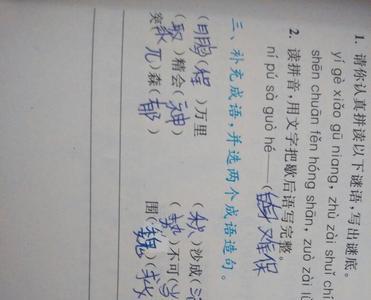 1. 请你认真拼读以下谜语,写出谜底。
yí gè xiǎo gū niang, zhù zài shuǐ
shēn chuān fěn hóng shān, zuò zài
2. 读拼音,用文字把歇后语写完整。
ní pú sà guò hé——(自身难保
三、补充成语,并选两个成语造句。
(鹏程)万里 ( )沙成(
(聚)精会(神) (势)不可(当
突(兀)森(郁) 围(魏)(救